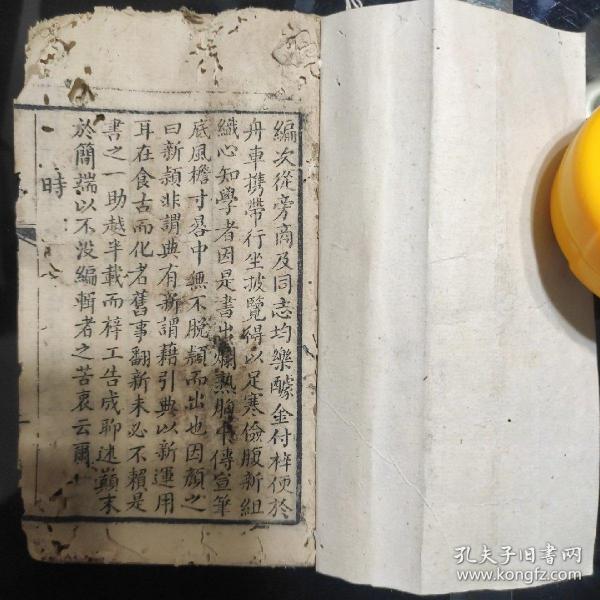 編次從旁商及同志均樂醵金付梓便於
舟車携帶行坐披覽得以足寒儉腹新組
織心知學者因是書出爛熟胸中傳宣筆
底風檐寸晷中無不脫穎而出也因顏之
曰新穎非謂典有新謂藉引典以新運用
耳在食古而化者舊事翻新未必不賴是
書之一助越半載而梓工告成聊述巔末
於簡端以不没編輯者之苦衷云爾
時
孔夫子旧书网
www.kongfz.com